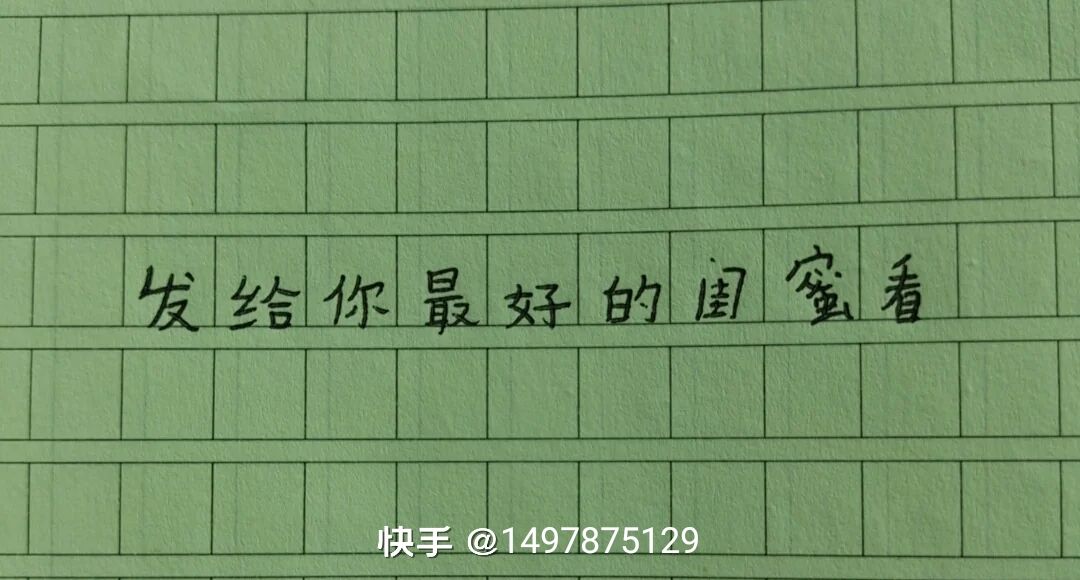 发给你最好的闺蜜看
快手 @1497875129